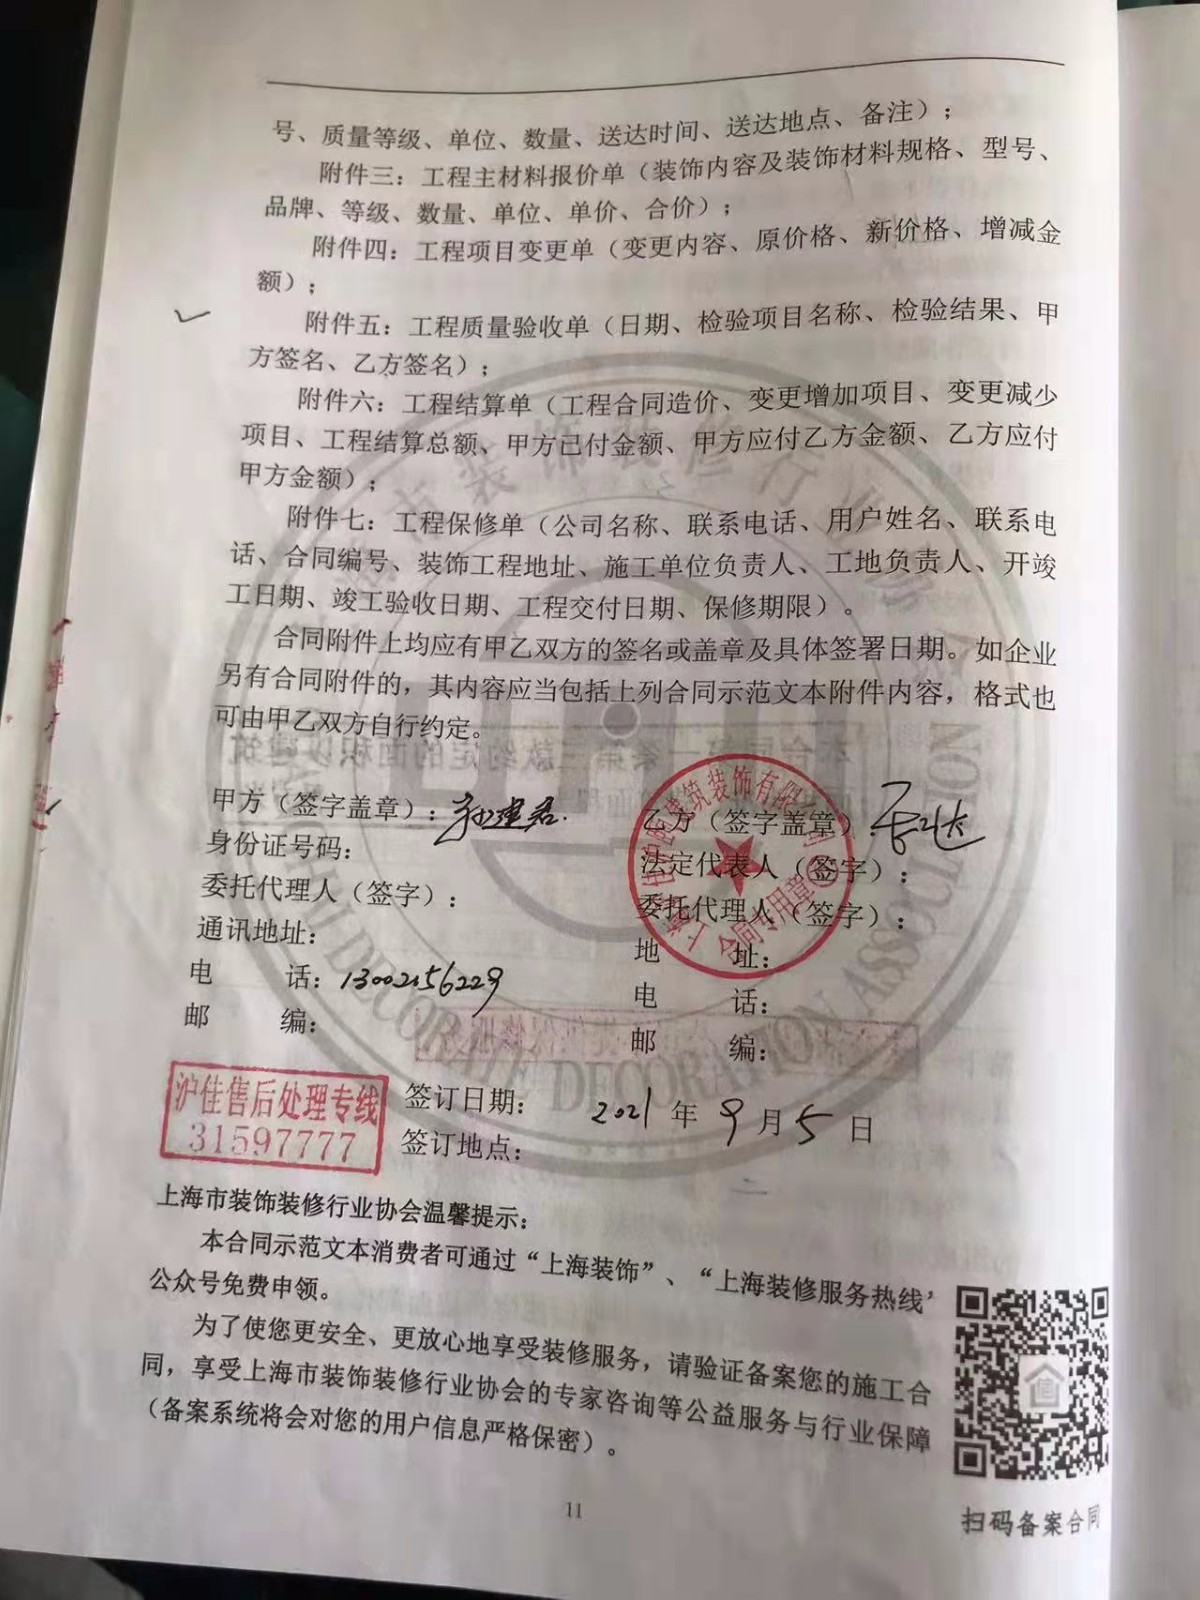 号、质量等级、单位、数量、送达时间、送达地点、备注）；
附件三：工程主材料报价单（装饰内容及装饰材料规格、型号、
品牌、等级、数量、单位、单价、合价）；
附件四：工程项目变更单（变更内容、原价格、新价格、增减金
额）；
附件五：工程质量验收单（日期、检验项目名称、检验结果、甲
方签名、乙方签名）；
附件六：工程结算单（工程合同造价、变更增加项目、变更减少
项目、工程结算总额、甲方已付金额、甲方应付乙方金额、乙方应付
甲方金额）；
附件七：工程保修单（公司名称、联系电话、用户姓名、联系电
话、合同编号、装饰工程地址、施工单位负责人、工地负责人、开竣
工日期、竣工验收日期、工程交付日期、保修期限）。
合同附件上均应有甲乙双方的签名或盖章及具体签署日期。如企业
另有合同附件的，其内容应当包括上列合同示范文本附件内容，格式也
可由甲乙双方自行约定。
甲方（签字盖章）：孙建君
身份证号码：
委托代理人（签字）：
通讯地址：
电 话：13002156229
邮 编：
乙方（签字盖章）：
法定代表人（签字）：
委托代理人（签字）：
地 址：
电 话：
邮 编：
建筑装饰有限公司
合同专用章
沪佳售后处理专线
31597777
签订日期： 2021 年 9 月 5 日
签订地点：
上海市装饰装修行业协会温馨提示：
本合同示范文本消费者可通过“上海装饰”、“上海装修服务热线”
公众号免费申领。
为了使您更安全、更放心地享受装修服务，请验证备案您的施工合
同，享受上海市装饰装修行业协会的专家咨询等公益服务与行业保障
（备案系统将会对您的用户信息严格保密）。
11
扫码备案合同